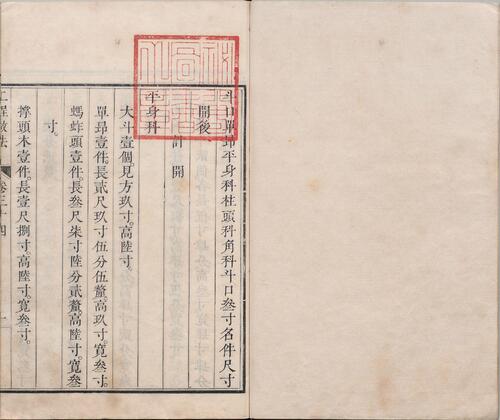 斗口單昂平身科柱頭科角科斗口叁寸各件尺寸
開後、
計開
平身科
大斗壹個見方玖寸。高陸寸。
單昂壹件。長貳尺玖寸伍分伍釐。高玖寸。寬叁寸。
螞蚱頭壹件。長叁尺柒寸陸分貳釐。高陸寸。寬叁
寸。
撐頭木壹件。長壹尺捌寸。高陸寸。寬叁寸。
工程做法 卷三十四 一